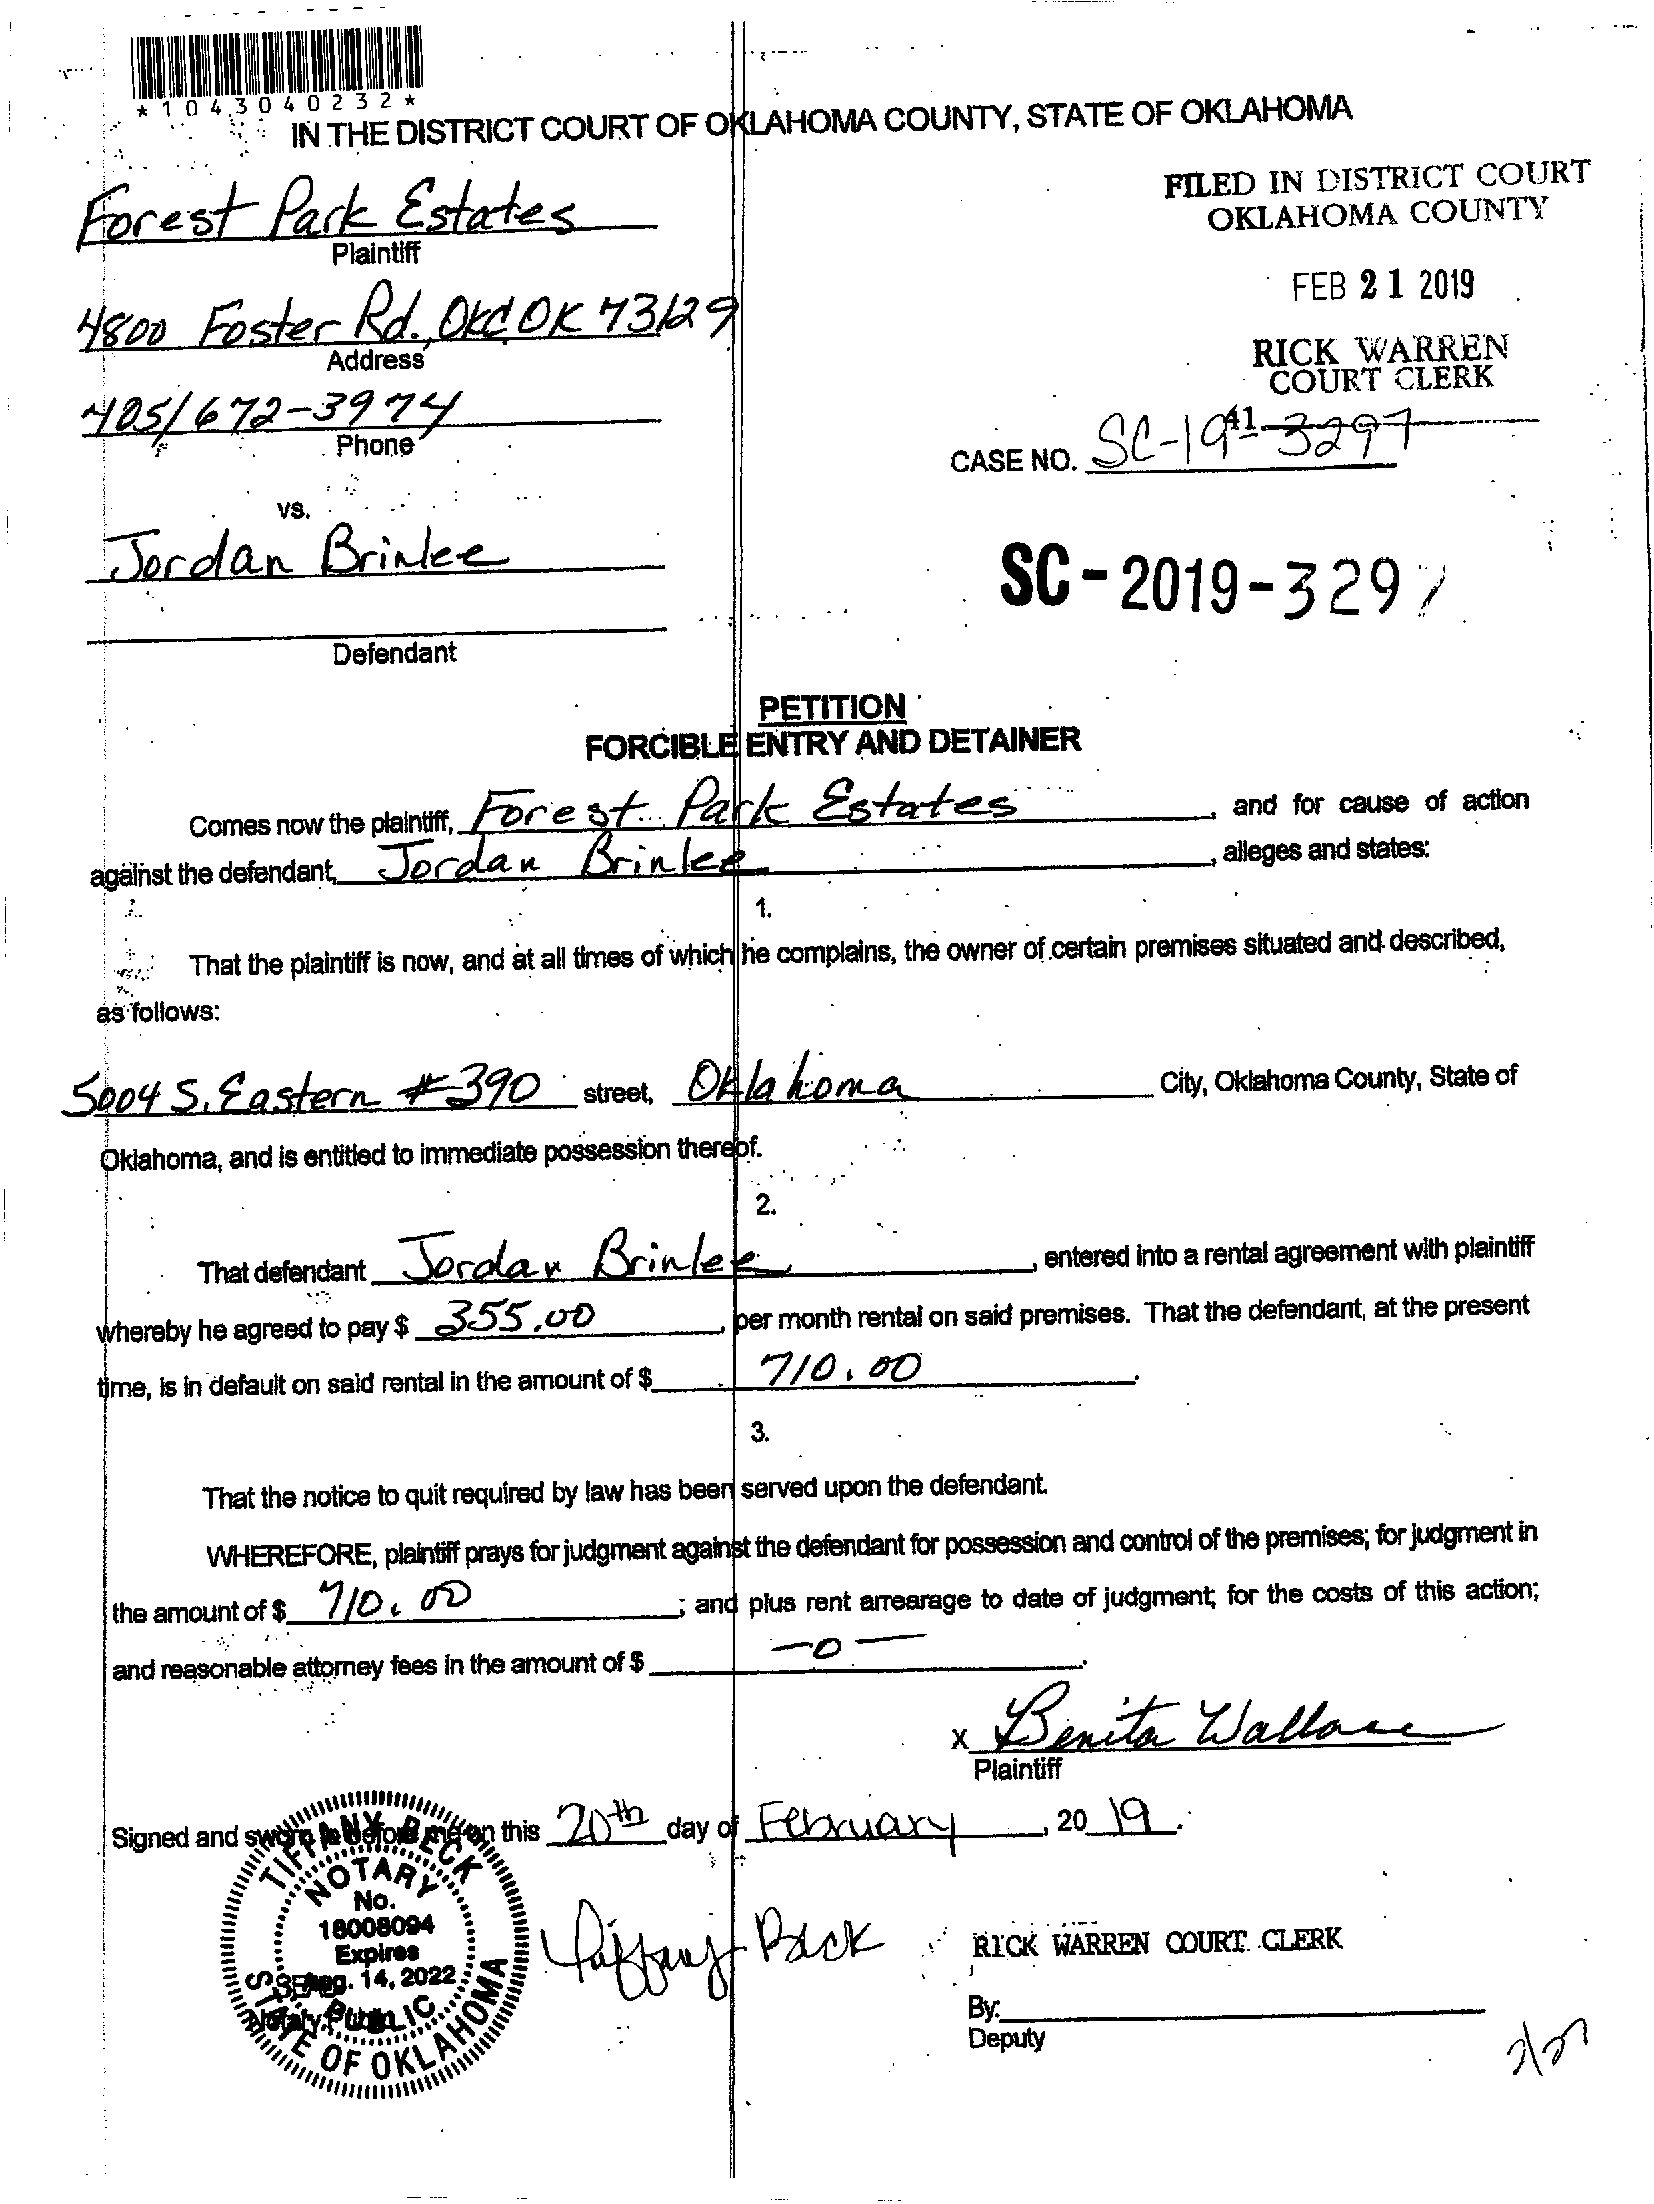 *1043040232*
IN THE DISTRICT COURT OF OKLAHOMA COUNTY, STATE OF OKLAHOMA
Forest Park Estates
Plaintiff
FILED IN DISTRICT COURT
OKLAHOMA COUNTY
FEB 21 2019
RICK WARREN
COURT CLERK
4800 Foster Rd., OKC OK 73129
Address
405/672-3974
Phone
41
CASE NO. SC-19-3297
vs.
Jordan Brinlee
SC-2019-3297
Defendant
PETITION
FORCIBLE ENTRY AND DETAINER
Comes now the plaintiff, Forest Park Estates, and for cause of action
against the defendant, Jordan Brinlee, alleges and states:
1.
That the plaintiff is now, and at all times of which he complains, the owner of certain premises situated and described,
as follows:
5004 S. Eastern #390 street, Oklahoma City, Oklahoma County, State of
Oklahoma, and is entitled to immediate possession thereof.
2.
That defendant Jordan Brinlee, entered into a rental agreement with plaintiff
whereby he agreed to pay $ 355.00, per month rental on said premises. That the defendant, at the present
time, is in default on said rental in the amount of $ 710.00.
3.
That the notice to quit required by law has been served upon the defendant.
WHEREFORE, plaintiff prays for judgment against the defendant for possession and control of the premises; for judgment in
the amount of $ 710.00; and plus rent arrearage to date of judgment; for the costs of this action;
and reasonable attorney fees in the amount of $ -0-.
x Benita Wallace
Plaintiff
Signed and sworn to before me on this 20th day of February, 2019.
TIFFANY BECK
NOTARY
No.
18008094
Expires
Aug. 14, 2022
SEAL
Notary Public
PUBLIC
STATE OF OKLAHOMA
Tiffany Beck
RICK WARREN COURT CLERK
By:
Deputy
2/27